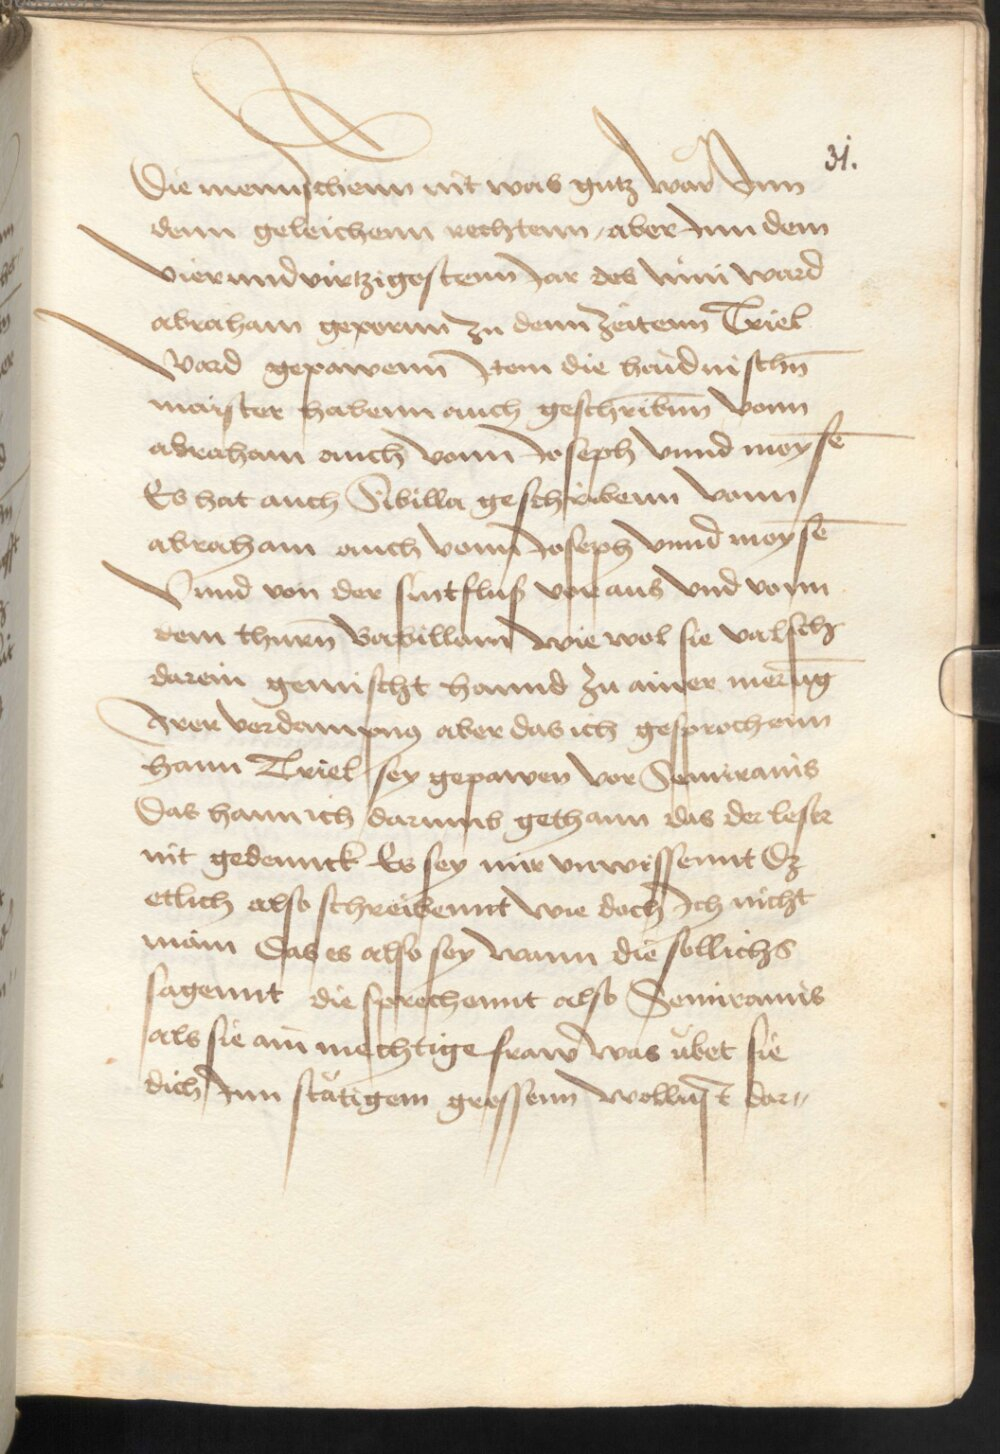 31.
Die mennschenn nit was gutz war Inn
denn geleichenn rechtenn / aber Inn dem
Vierundvirtzigostenn Jar des Nini ward
abraham geporun zu denn zeitenn Triel
Ward gepawenn Item die haidnischn̄
maister habenn auch geschribnn̄ vonn
abraham auch vonn Joseph vnnd moyse
Es hat auch Sibilla geschribenn vonn
abraham auch vonn Joseph vnnd moyse
Vnnd von der sintfluß vor aus vnd vonn
dem thurn̄ Babillonn wie wol sie valsch
darein gemischt hannd zu ainer merūg
Irer verdampnus aber das ich gesprochenn
hann Triel sey gepawen vor Semiramis
Das hann ich darumb gethann das der leser
nit gedennck Es sey mir vnwissennt Dz
etlich also schreibennt wie doch Ich nicht
main Das es also sey wann die sollichs
sagennt die sprechennt also Semiramis
als sie ain mechtige fraw was übet sie
dich Inn stätigem grossenn wollust dar〃